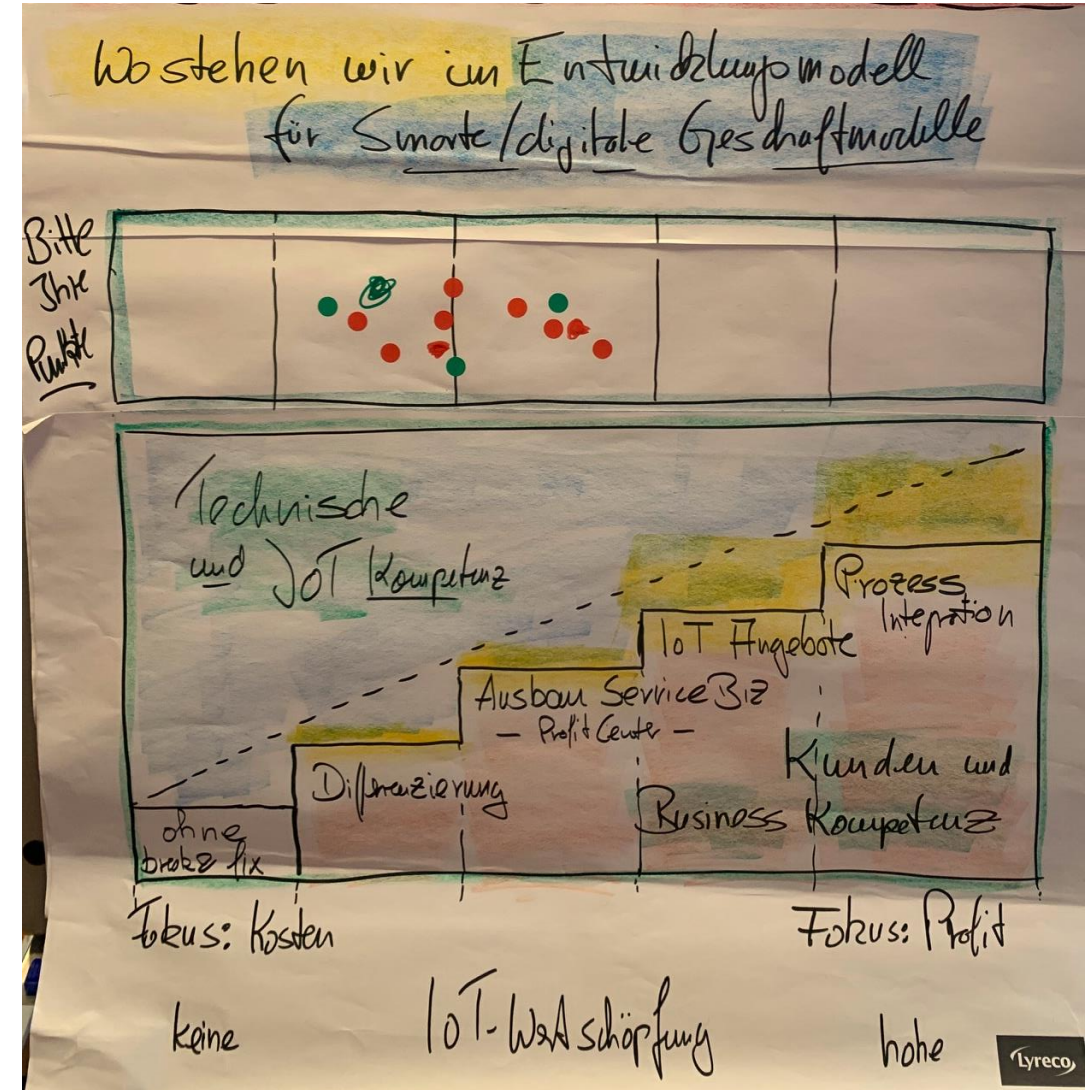 Wo stehen wir im Entwicklungsmodell
für Smarte/digitale Geschäftmodelle
Bitte
Ihre
Punkte
Technische
und IoT Kompetenz
Prozess
Integration
IoT Angebote
Ausbau Service Biz
- Profit Center -
Differenzierung
Kunden und
Business Kompetenz
ohne
break & fix
Fokus: Kosten
Fokus: Profit
keine
IoT-Wertschöpfung
hohe
Lyreco